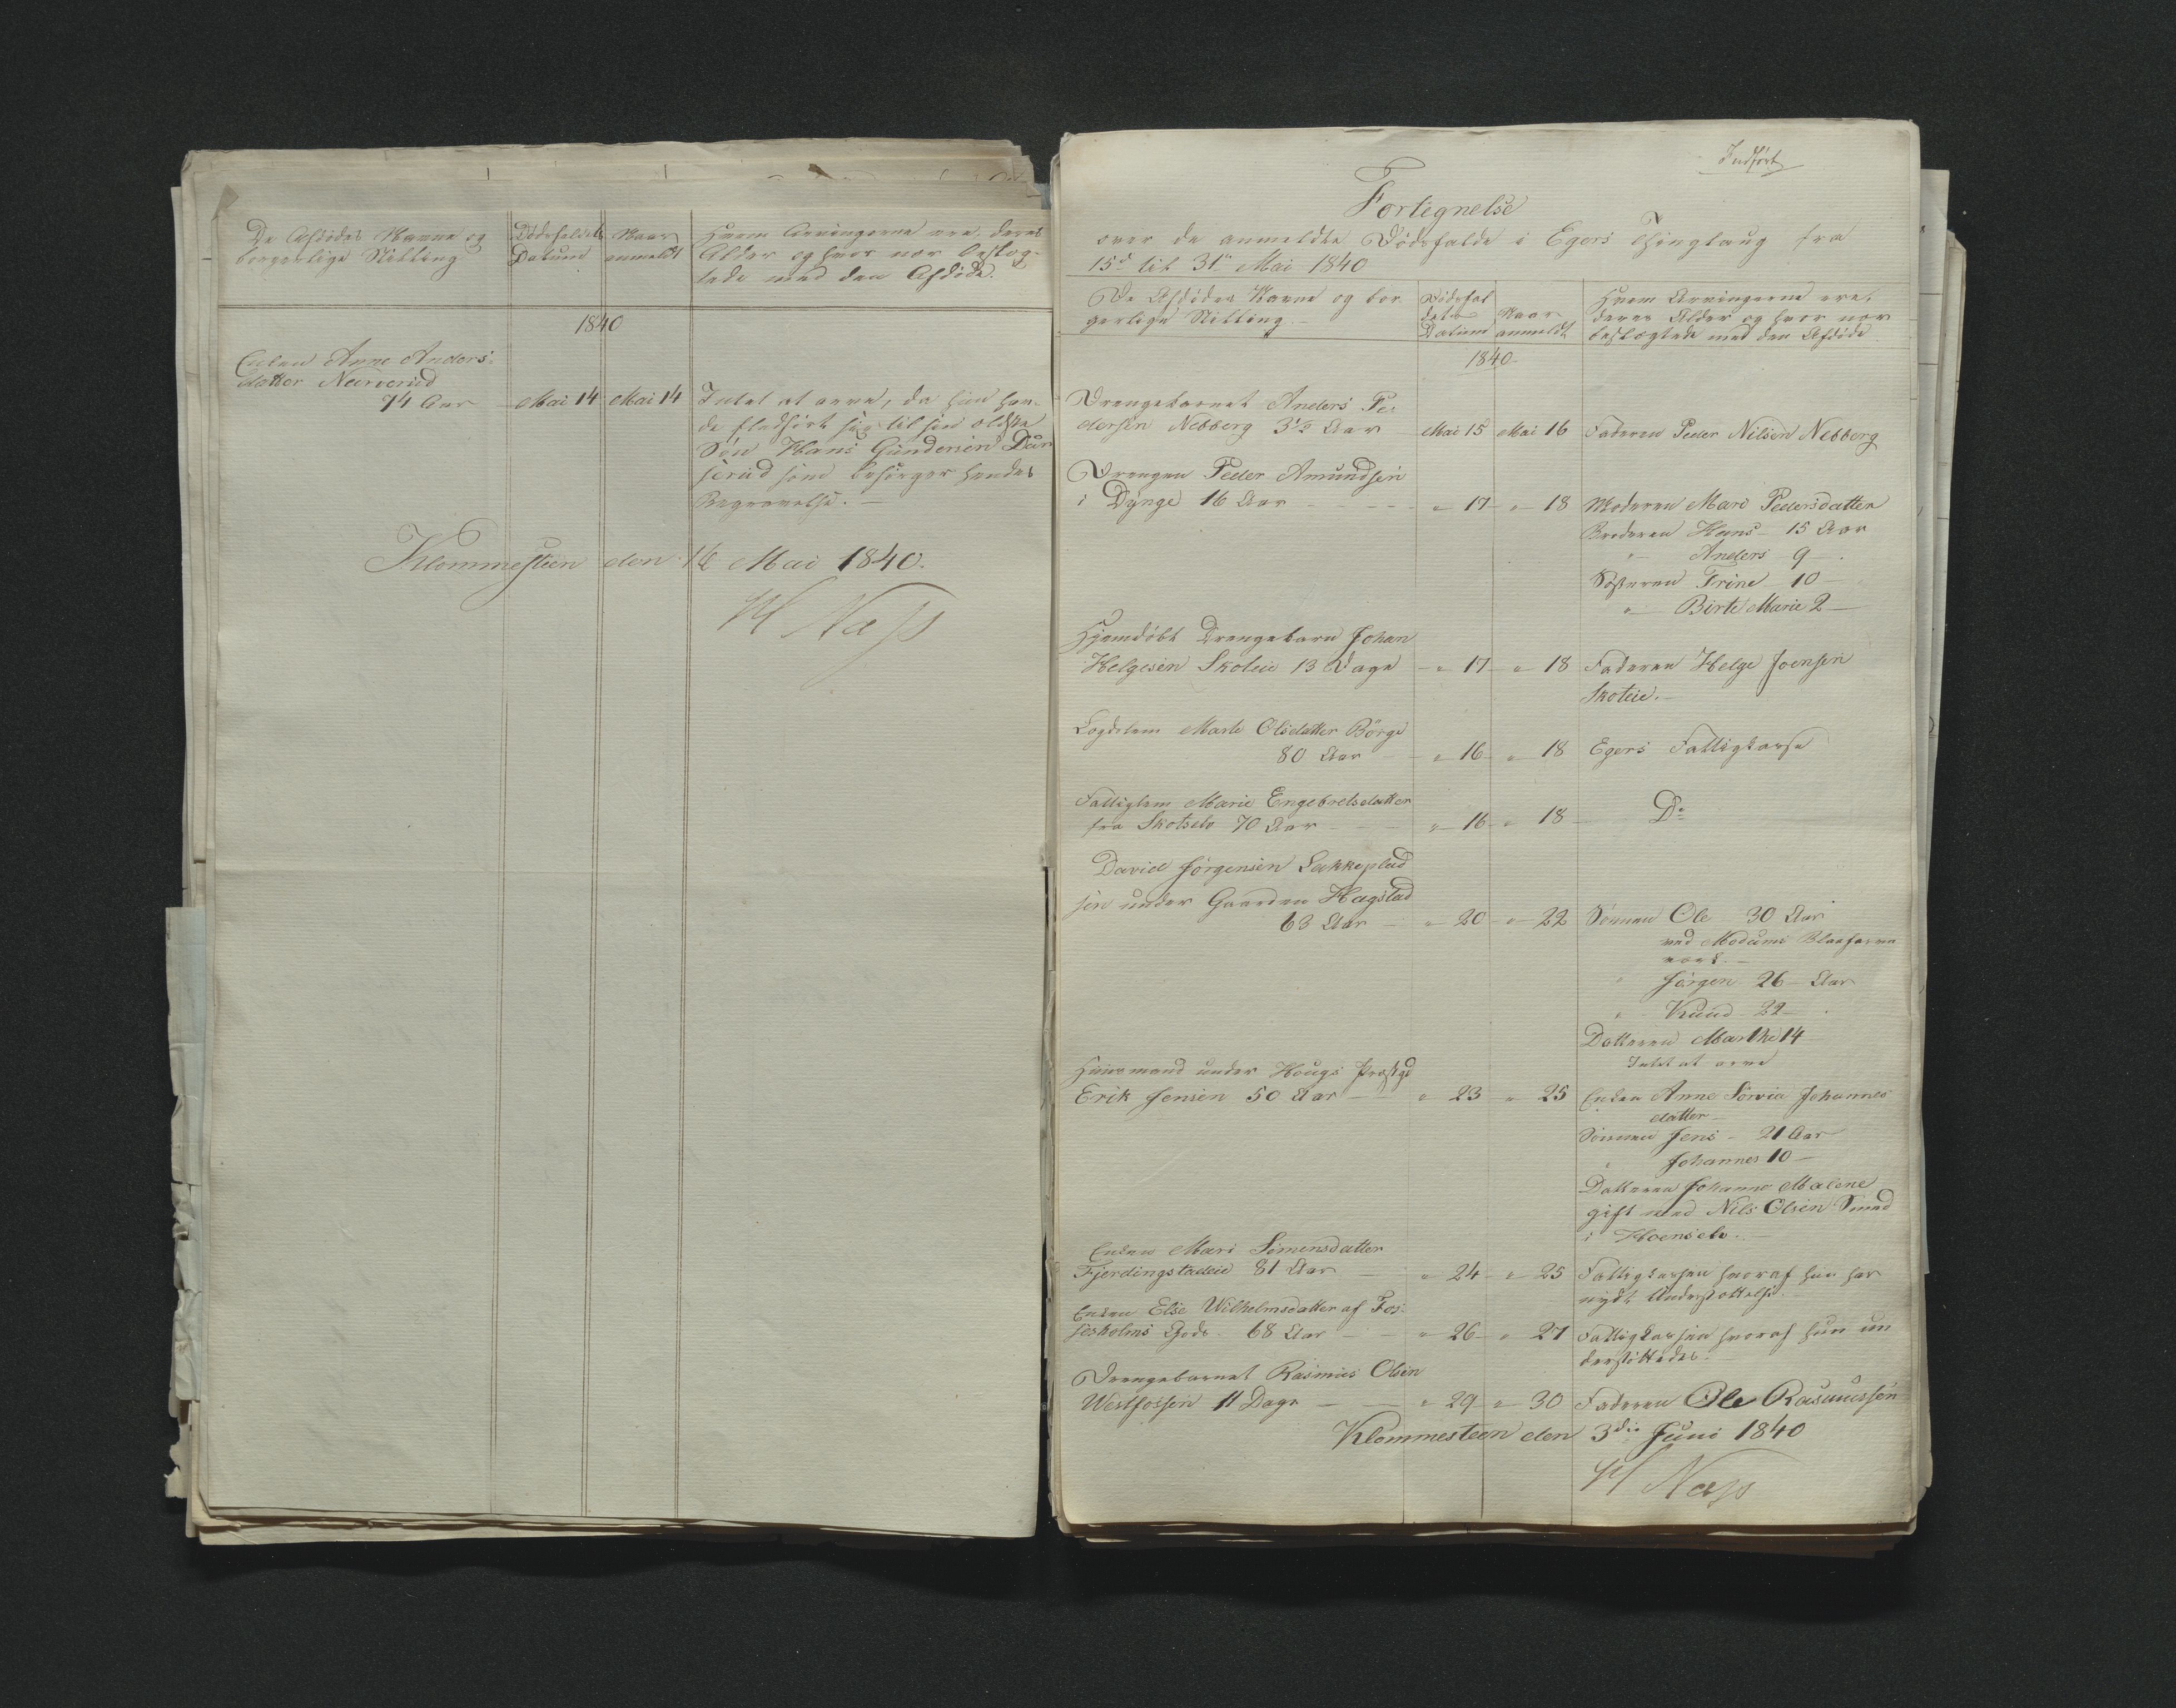 De Afdødes Navne og
borgerlige Stilling
Dødsfaldets
Datum
Naar
anmeldt
Hvem Arvingerne ere, deres
Alder og hvor nær beslæg-
tede med den Afdøde.
1840
Enken Anne Anders-
datter Narverud
74 Aar - Mai 14 Mai 14 Intet at arve, da hun hav-
de fledført sig til sin ældste
Søn Hans Gundersen
serud som besørger hendes
Begravelse. -
Klommesteen den 16 Mai 1840.
Næss
Indført
Fortegnelse
over de anmeldte Dødsfalde i Egers Thinglaug fra
15d til 31te Mai 1840
De Afdødes Navne og bor-
gerlige Stilling.
Dødsfal-
dets
Datum
Naar
anmeldt
Hvem Arvingerne ere,
deres Alder og hvor nær
beslægtede med den Afdøde
1840
Drengebarnet Anders Pe-
dersen Nebberg 3½ Aar Mai 15 Mai 16 Faderen Peder Nilsen Nebberg
Drengen Peder Amundsen
i Dynge 16 Aar - - - - " 17 - " 18 Moderen Mari Pedersdatter
Broderen Hans - 15 Aar
" - Anders - 9 - .
Søsteren Trine - 10 -
" - Birte Marie 2 -
Hjemdøbt Drengebarn Johan
Helgesen Skoteie 13 Dage - " 17 - " 18 Faderen Helge Joensen
Skoteie. -
Lægdslem Marte Olsdatter Børge
80 Aar - " 16 - " 18 Egers Fattigkasse
Fattiglem Marie Engebretsdatter
fra Skotselv 70 Aar - - " 16 - " 18 - Do
David Jørgensen Lakkeplad-
sen under Gaarden Hagstad
63 Aar - " 20 - " 22 Sønnen Ole 30 Aar
ved Modums Blaafarve-
værk. -
" Jørgen 26 - Aar
" - Knud - 22 - .
Datteren Marthe 14 -
Intet at arve
Huusmand under Hougs Præstgd
Erik Jensen 50 Aar - - " 23 - " 25 Enken Anne Sovia Johannes-
datter -
Sønnen Jens - 21 Aar
" Johannes 10 -
Datteren Johanne Malene
gift med Nils Olsen Smed
i Hoenselv. -
Enken Mari Simensdatter
Fjerdingstadeie 81 Aar - " 24 - " 25 Fattigkassen hvoraf hun har
nydt Understøttelse. -
Enken Else Wilhelmsdatter af Fos-
sesholms Gods - 68 Aar - - " 26 - " 27 Fattigkassen hvoraf hun un-
derstøttedes. -
Drengebarnet Rasmus Olsen
Westfossen 11 Dage - - " 29 - " 30 Faderen Ole Rasmussen
Klommesteen den 3die Juni 1840
Næss